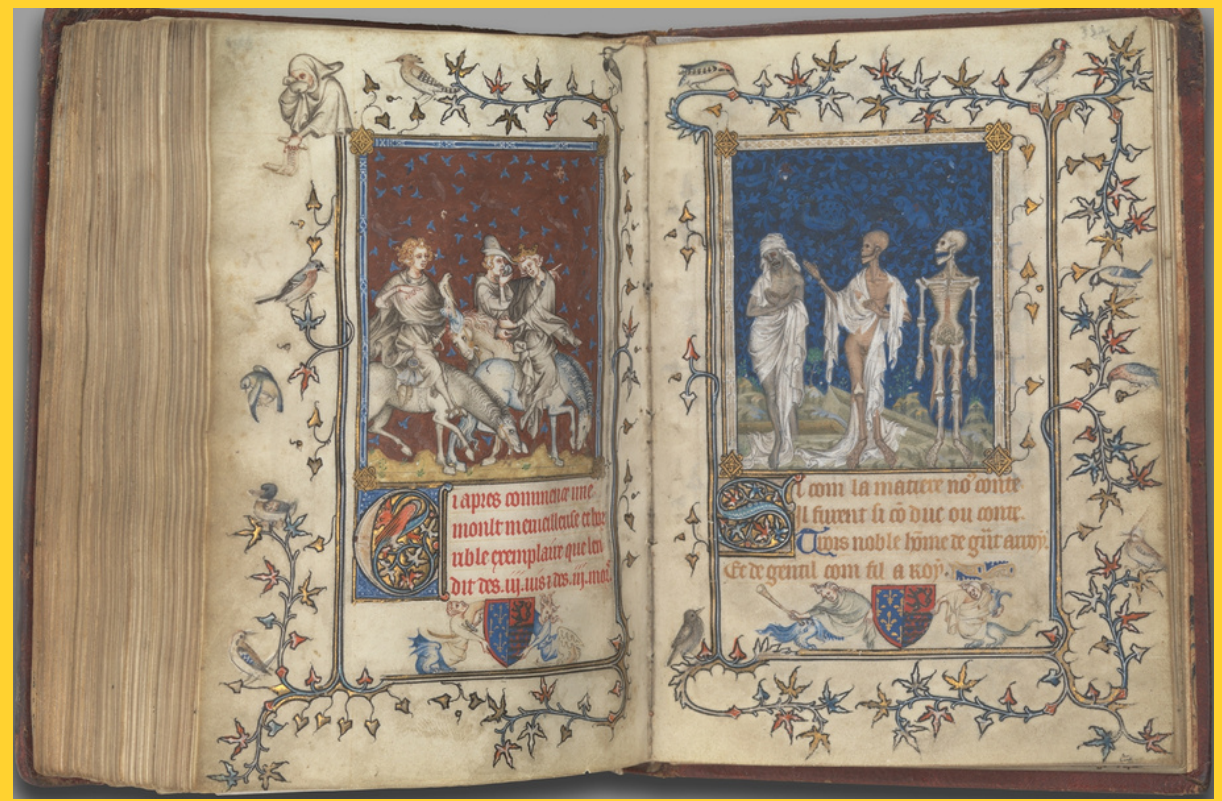 Ci apres commence une
moult merueilleuse et hor
rible exemplaire que len
dit des .iij. uis ⁊ des .iij. mors.
Si com la matiere nō conte
Il furent si cō duc ou conte
Trois noble hōme de gūt arroy.
Et de gentil com fil a roy.